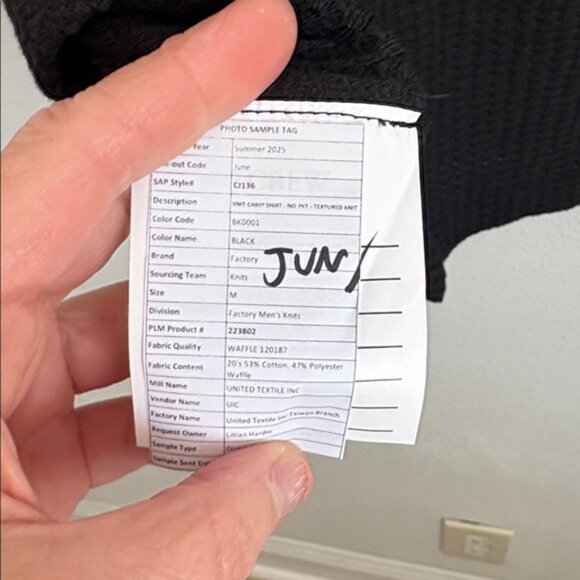 PHOTO SAMPLE TAG
Year Summer 2025
-out Code June
SAP Style# CJ136
Description KNIT CAMP SHIRT - NO PKT - TEXTURED KNIT
Color Code BK0001
Color Name BLACK
Brand Factory
JUN/
Sourcing Team Knits
Size M
Division Factory Men's Knits
PLM Product # 223802
Fabric Quality WAFFLE 120187
Fabric Content 20's 53% Cotton, 47% Polyester
Waffle
Mill Name UNITED TEXTILE INC
Vendor Name UIC
Factory Name United Textile Inc Taiwan Branch
Request Owner Lillian Hardin
Sample Type
Sample Send